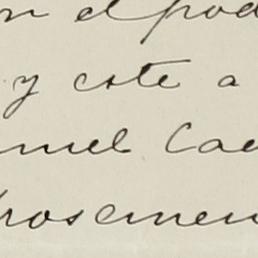 n el pod
y este a
nuel Cae
rosamen